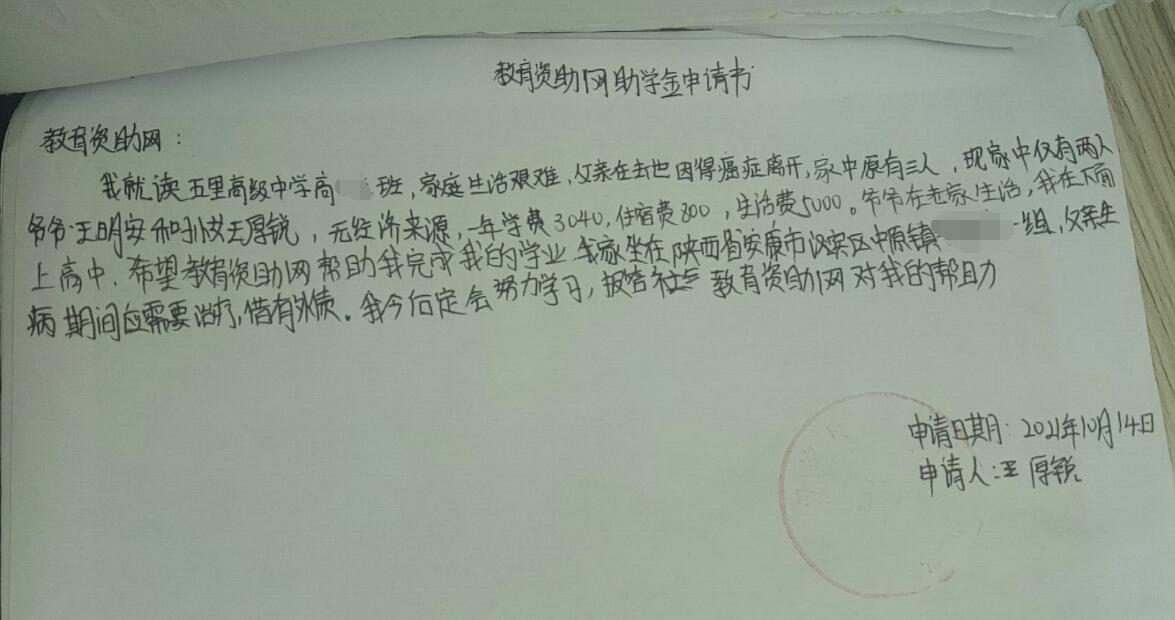 教育资助网助学金申请书
教育资助网：
我就读五里高级中学高班，家庭生活艰难，父亲在去世因得癌症离开，家中原有三人，现家中仅有两人
爷爷王明安和孙女王厚锐，无经济来源，一年学费3040，住宿费800，生活费5000。爷爷在老家生活，我在
上高中．希望教育资助网帮助我完成我的学业．我家坐在陕西省安康市汉滨区中原镇一组，父亲生
病期间应需要治疗，借有外债。我今后定会努力学习，报答社会 教育资助网对我的帮助
申请日期：2021年10月14日
申请人：王厚锐